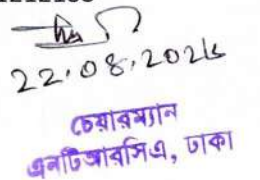 22.08.2024
চেয়ারম্যান
এনটিআরসিএ, ঢাকা